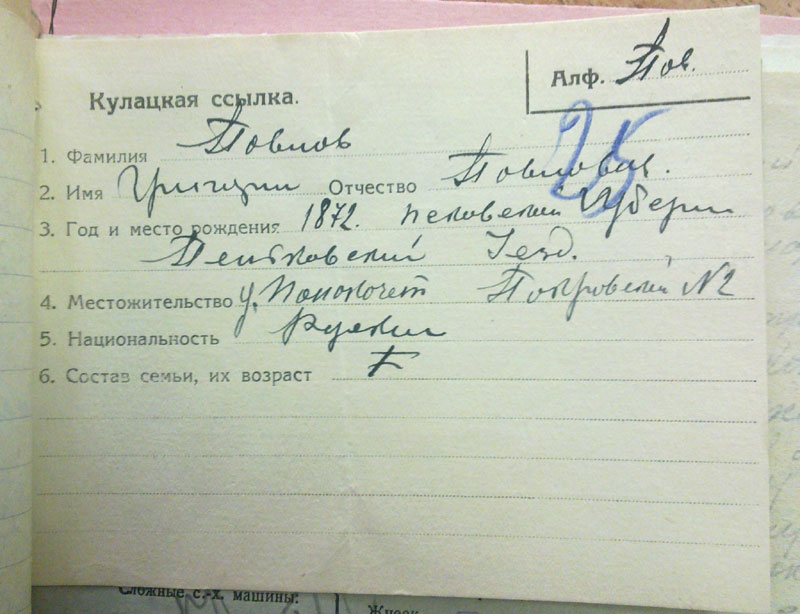 Алф. Пов.
Кулацкая ссылка.
25
1. Фамилия Повлов
2. Имя Григории Отчество Повлович.
3. Год и место рождения 1872. Псковский Губерни
Уезд.
4. Местожительство Покровский №2
5. Национальность Руский
6. Состав семьи, их возраст
Сложные с.-х. машины: